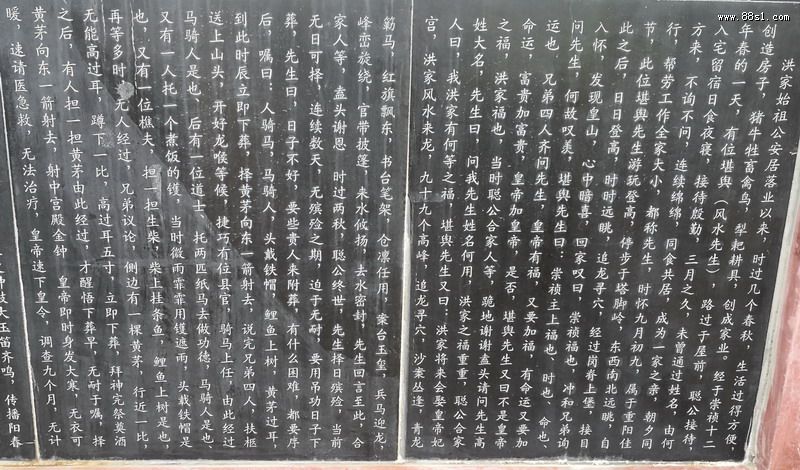 www.88s1.com
洪家始祖公安居落业以来，时过几个春秋，生活过得方便，
创造房子，猪牛牲畜禽鸟，犁耙耕具，创成家业，经于崇祯十二
年春的一天，有位堪舆（风水先生），路过于屋前，聪公接待，
入宅留宿日食夜寝，接待殷勤，三月之久，未曾通过姓名，由何
方来，不询不问，连续绵绵，同食共居，成为一家之亲，朝夕同
行，帮劳工作全家大小，都称先生，时怀九月初九，属于重阳佳
节，此位堪舆先生游玩登高，停步于塔脚岭，东西南北远眺，自
此之后，日日登高，时时远眺，追龙寻穴，经过岗脊山堡，接目
入怀，发现皇山，心中暗喜，回家叹曰，崇祯福也，冲和兄弟询
问先生，何故叹美，堪舆先生曰：崇祯主上福也、时也、命也、
运也，兄弟四人齐问先生，皇帝有福，又要加福，有命运又要加
命运，富贵加富贵，皇帝加皇帝，是否，堪舆先生又曰不是皇帝
之福，洪家福也，当时聪公合家人等，跪地谢谢盍头请问先生高
姓大名，先生曰，问我先生姓名何用，洪家之福重重，聪公合家
人曰，我洪家有何等之福，堪舆先生又曰：洪家将来会娶皇帝妃
宫，洪家风水来龙，九十九个高峰，追龙寻穴，沙案丛逢，青龙
笏马，红旗飘东，书台笔架，仓凛任用，案台玉玺，兵马迎龙，
峰峦旋绕，官带披蓬，来水攸扬，去水密封，先生回言至此，合
家人等，盍头谢恩，时过两秋，聪公终世，先生择日殡殓，当前
无日可择，连续数天，无殡殓之期，迫于无耐，要用吊功日子下
葬，先生曰，日子不好，要些贵人来附葬，有什么困难，都要序
后，嘱曰：人骑马，马骑人，头戴铁帽，鲤鱼上树，黄茅过耳，
到此时辰立即下葬，择黄茅向东一箭射去，说完兄弟四人，扶柩
送上山头，开好龙喉等候，捷巧有位县官，骑马上任，由此经过
马骑人是也，后有一位道士，托两匹纸马去做功德，马骑人是也，
又有一人托一个煮饭的镬，当时微雨霏霏用镬遮雨，头戴铁帽是
也，又有一位樵夫，担一担生柴，柴上挂条鱼，鲤鱼上树是也，
再等多时，无人经过，兄弟议论，侧边有一棵黄茅，行近一比，
无能高过耳，蹲下一比，高过耳五寸，立即下葬，拜神完祭奠酒
之后，有人担一担黄茅由此经过，才醒悟下葬早，无耐于嘱，择
黄茅向东一箭射去，射中宫殿金钟，皇帝即时身发大寒，无衣可
暖，速请医急救，无法治疗，皇帝速下皇令，调查九个月，无计
大玉笛齐鸣，传播阳春